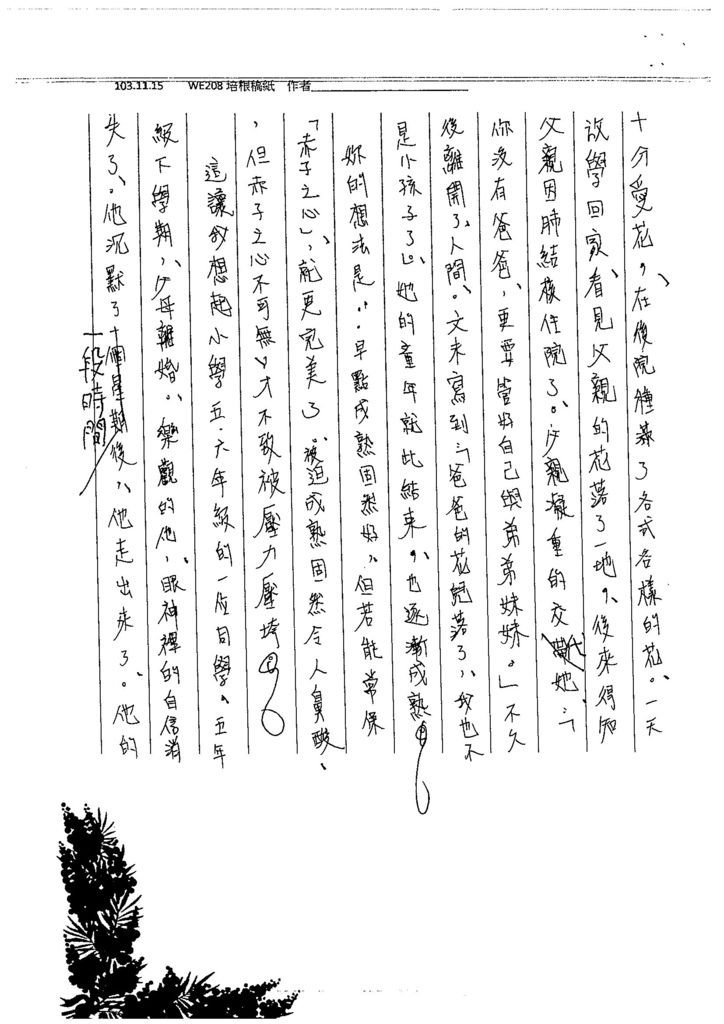 103.11.15 WE208 培根稿紙 作者
十分愛花，在後院種養了各式各樣的花。一天
放學回家、看見父親的花落了一地，後來得知
父親因肺結核住院了。父親凝重的交代她：「
你沒有爸爸，更要管好自己與弟弟妹妹。」不久
後離開了人間。文末寫到：「爸爸的花兒落了，我也不
是小孩子了」。她的童年就此結束，也逐漸成熟。
妳的想法是：早點成熟固然好，但若能常保
「赤子之心」，就更完美了。被迫成熟固然令人鼻酸，
，但赤子之心不可無，才不致被壓力壓垮。
這讓我想起小學五、六年級的一位同學。五年
級下學期，父母離婚。樂觀的他，眼神裡的自信消
失了。他沉默了十個星期後，他走出來了。他的
一段時間